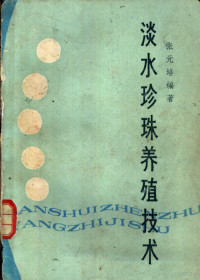 淡水珍珠养殖技术
张元培编著
DANSHUIZHENZHU
YANGZHIJISHU